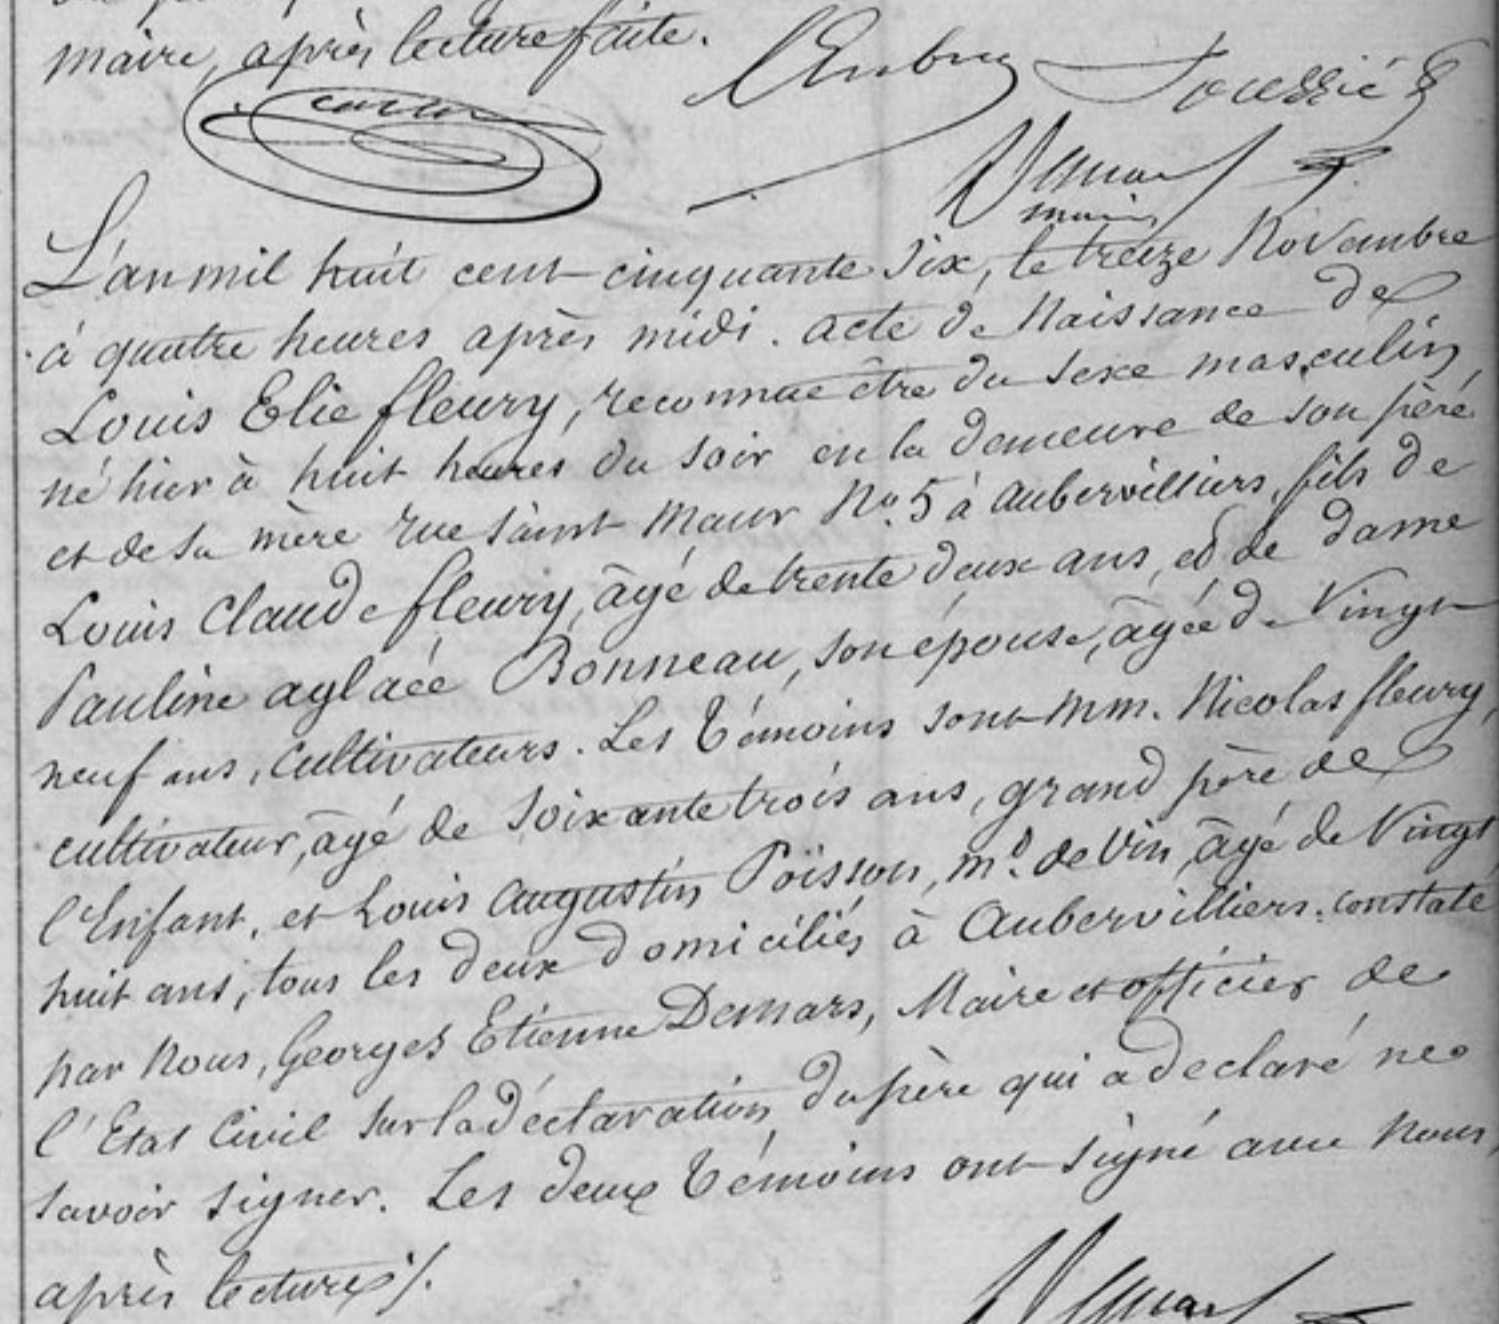 maire, après lecture faite.
L'an mil huit cent cinquante six, le treize Novembre
à quatre heures après midi. acte de Naissance de
Louis Elie fleury, reconnue être du sexe masculin,
né hier à huit heures du soir en la demeure de son père
et de sa mère rue saint Maur No. 5 à aubervilliers, fils de
Louis Claude fleury, âgé de trente deux ans, et de dame
Pauline aglaée Bonneau, son épouse, âgée de Vingt
neuf ans, cultivateurs. Les témoins sont mm. Nicolas fleury,
cultivateur, âgé de soixante trois ans, grand père de
l'Enfant, et Louis augustin Poïsson, md. de Vin, âgé de Vingt
huit ans, tous les deux domiciliés à Aubervilliers. constaté
par Nous, Georges Etienne Demars, Maire et officier de
l'Etat Civil sur la déclaration du père qui a declaré ne
savoir signer. Les deux témoins ont signé avec Nous,
après lecture ./.